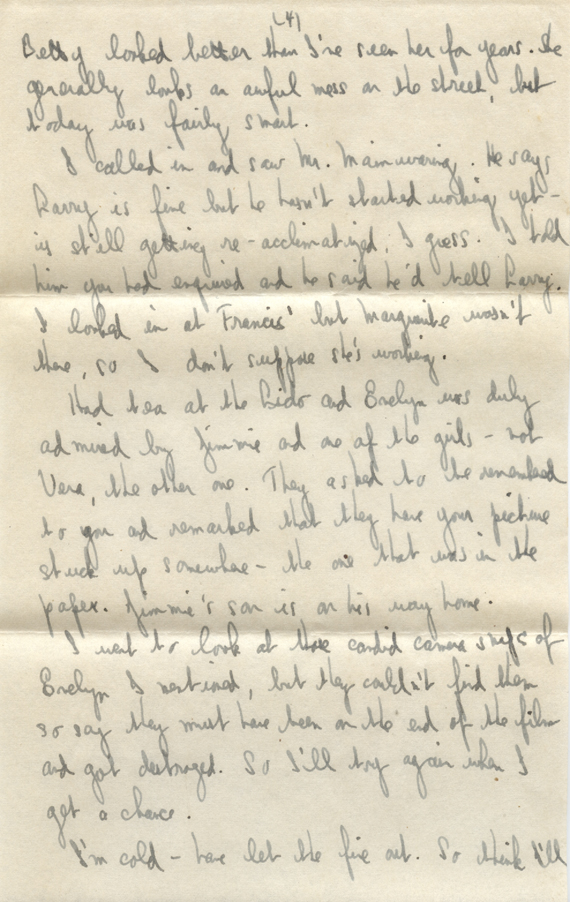 (4)
Betty looked better than I've seen her for years. She
generally looks an awful mess on the street, but
today was fairly smart.
I called in and saw Mr. Mainwaring. He says
Larry is fine but he hasn't started working yet -
is still getting re-acclimatized, I guess. I told
him you had enquired and he said he'd tell Larry.
I looked in at Francis' but Marguerite wasn't
there, so I don't suppose she's working.
Had tea at the Lido and Evelyn was duly
admired by Jimmie and one of the girls - not
Vera, the other one. They asked to be remembered
to you and remarked that they have your picture
stuck up somewhere - the one that was in the
paper. Jimmie's son is on his way home.
I went to look at those candid camera snips of
Evelyn I mentioned, but they couldn't find them
so say they must have been on the end of the film
and got destroyed. So I'll try again when I
get a chance.
I'm cold - have let the fire out. So think I'll